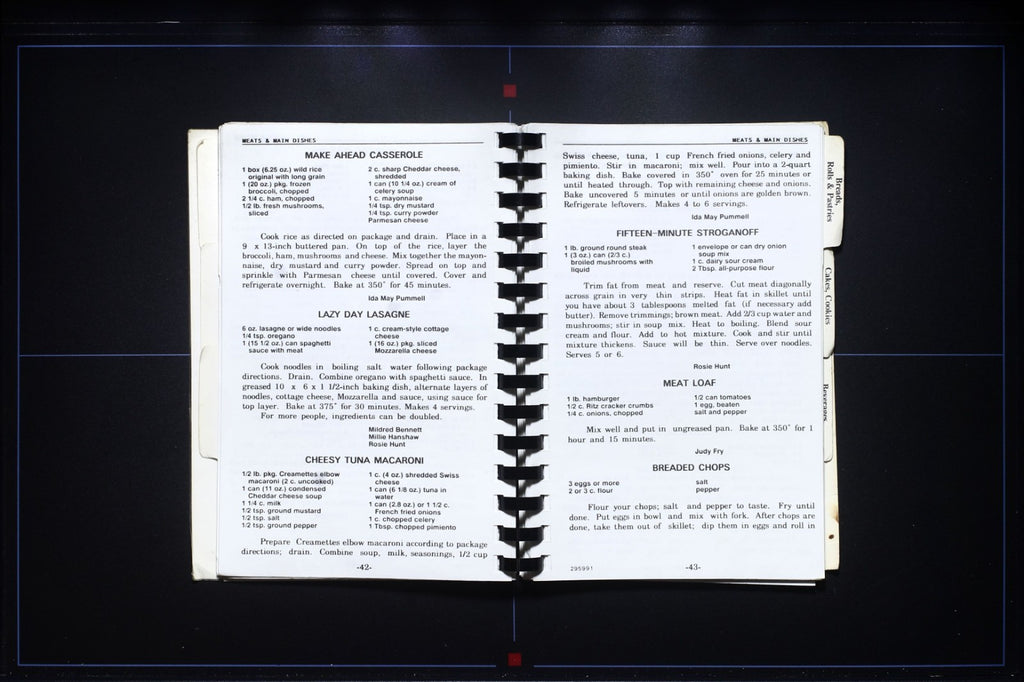 MEATS & MAIN DISHES
MAKE AHEAD CASSEROLE
1 box (6.25 oz.) wild rice
original with long grain
1 (20 oz.) pkg. frozen
broccoli, chopped
2 1/4 c. ham, chopped
1/2 lb. fresh mushrooms,
sliced
2 c. sharp Cheddar cheese,
shredded
1 can (10 1/4 oz.) cream of
celery soup
1 c. mayonnaise
1/4 tsp. dry mustard
1/4 tsp. curry powder
Parmesan cheese
Cook rice as directed on package and drain. Place in a
9 x 13-inch buttered pan. On top of the rice, layer the
broccoli, ham, mushrooms and cheese. Mix together the mayon-
naise, dry mustard and curry powder. Spread on top and
sprinkle with Parmesan cheese until covered. Cover and
refrigerate overnight. Bake at 350° for 45 minutes.
Ida May Pummell
LAZY DAY LASAGNE
6 oz. lasagne or wide noodles
1/4 tsp. oregano
1 (15 1/2 oz.) can spaghetti
sauce with meat
1 c. cream-style cottage
cheese
1 (16 oz.) pkg. sliced
Mozzarella cheese
Cook noodles in boiling salt water following package
directions. Drain. Combine oregano with spaghetti sauce. In
greased 10 x 6 x 1 1/2-inch baking dish, alternate layers of
noodles, cottage cheese, Mozzarella and sauce, using sauce for
top layer. Bake at 375° for 30 minutes. Makes 4 servings.
For more people, ingredients can be doubled.
Mildred Bennett
Millie Hanshaw
Rosie Hunt
CHEESY TUNA MACARONI
1/2 lb. pkg. Creamettes elbow
macaroni (2 c. uncooked)
1 can (11 oz.) condensed
Cheddar cheese soup
1 1/4 c. milk
1/2 tsp. ground mustard
1/2 tsp. salt
1/2 tsp. ground pepper
1 c. (4 oz.) shredded Swiss
cheese
1 can (6 1/8 oz.) tuna in
water
1 can (2.8 oz.) or 1 1/2 c.
French fried onions
1 c. chopped celery
1 Tbsp. chopped pimiento
Prepare Creamettes elbow macaroni according to package
directions; drain. Combine soup, milk, seasonings, 1/2 cup
-42-
MEATS & MAIN DISHES
Swiss cheese, tuna, 1 cup French fried onions, celery and
pimiento. Stir in macaroni; mix well. Pour into a 2-quart
baking dish. Bake covered in 350° oven for 25 minutes or
until heated through. Top with remaining cheese and onions.
Bake uncovered 5 minutes or until onions are golden brown.
Refrigerate leftovers. Makes 4 to 6 servings.
Ida May Pummell
FIFTEEN-MINUTE STROGANOFF
1 lb. ground round steak
1 (3 oz.) can (2/3 c.)
broiled mushrooms with
liquid
1 envelope or can dry onion
soup mix
1 c. dairy sour cream
2 Tbsp. all-purpose flour
Trim fat from meat and reserve. Cut meat diagonally
across grain in very thin strips. Heat fat in skillet until
you have about 3 tablespoons melted fat (if necessary add
butter). Remove trimmings; brown meat. Add 2/3 cup water and
mushrooms; stir in soup mix. Heat to boiling. Blend sour
cream and flour. Add to hot mixture. Cook and stir until
mixture thickens. Sauce will be thin. Serve over noodles.
Serves 5 or 6.
Rosie Hunt
MEAT LOAF
1 lb. hamburger
1/2 c. Ritz cracker crumbs
1/4 c. onions, chopped
1/2 can tomatoes
1 egg, beaten
salt and pepper
Mix well and put in ungreased pan. Bake at 350° for 1
hour and 15 minutes.
Judy Fry
BREADED CHOPS
3 eggs or more
2 or 3 c. flour
salt
pepper
Flour your chops; salt and pepper to taste. Fry until
done. Put eggs in bowl and mix with fork. After chops are
done, take them out of skillet; dip them in eggs and roll in
295991
-43-
Breads,
Rolls & Pastries
Cakes, Cookies
Beverages